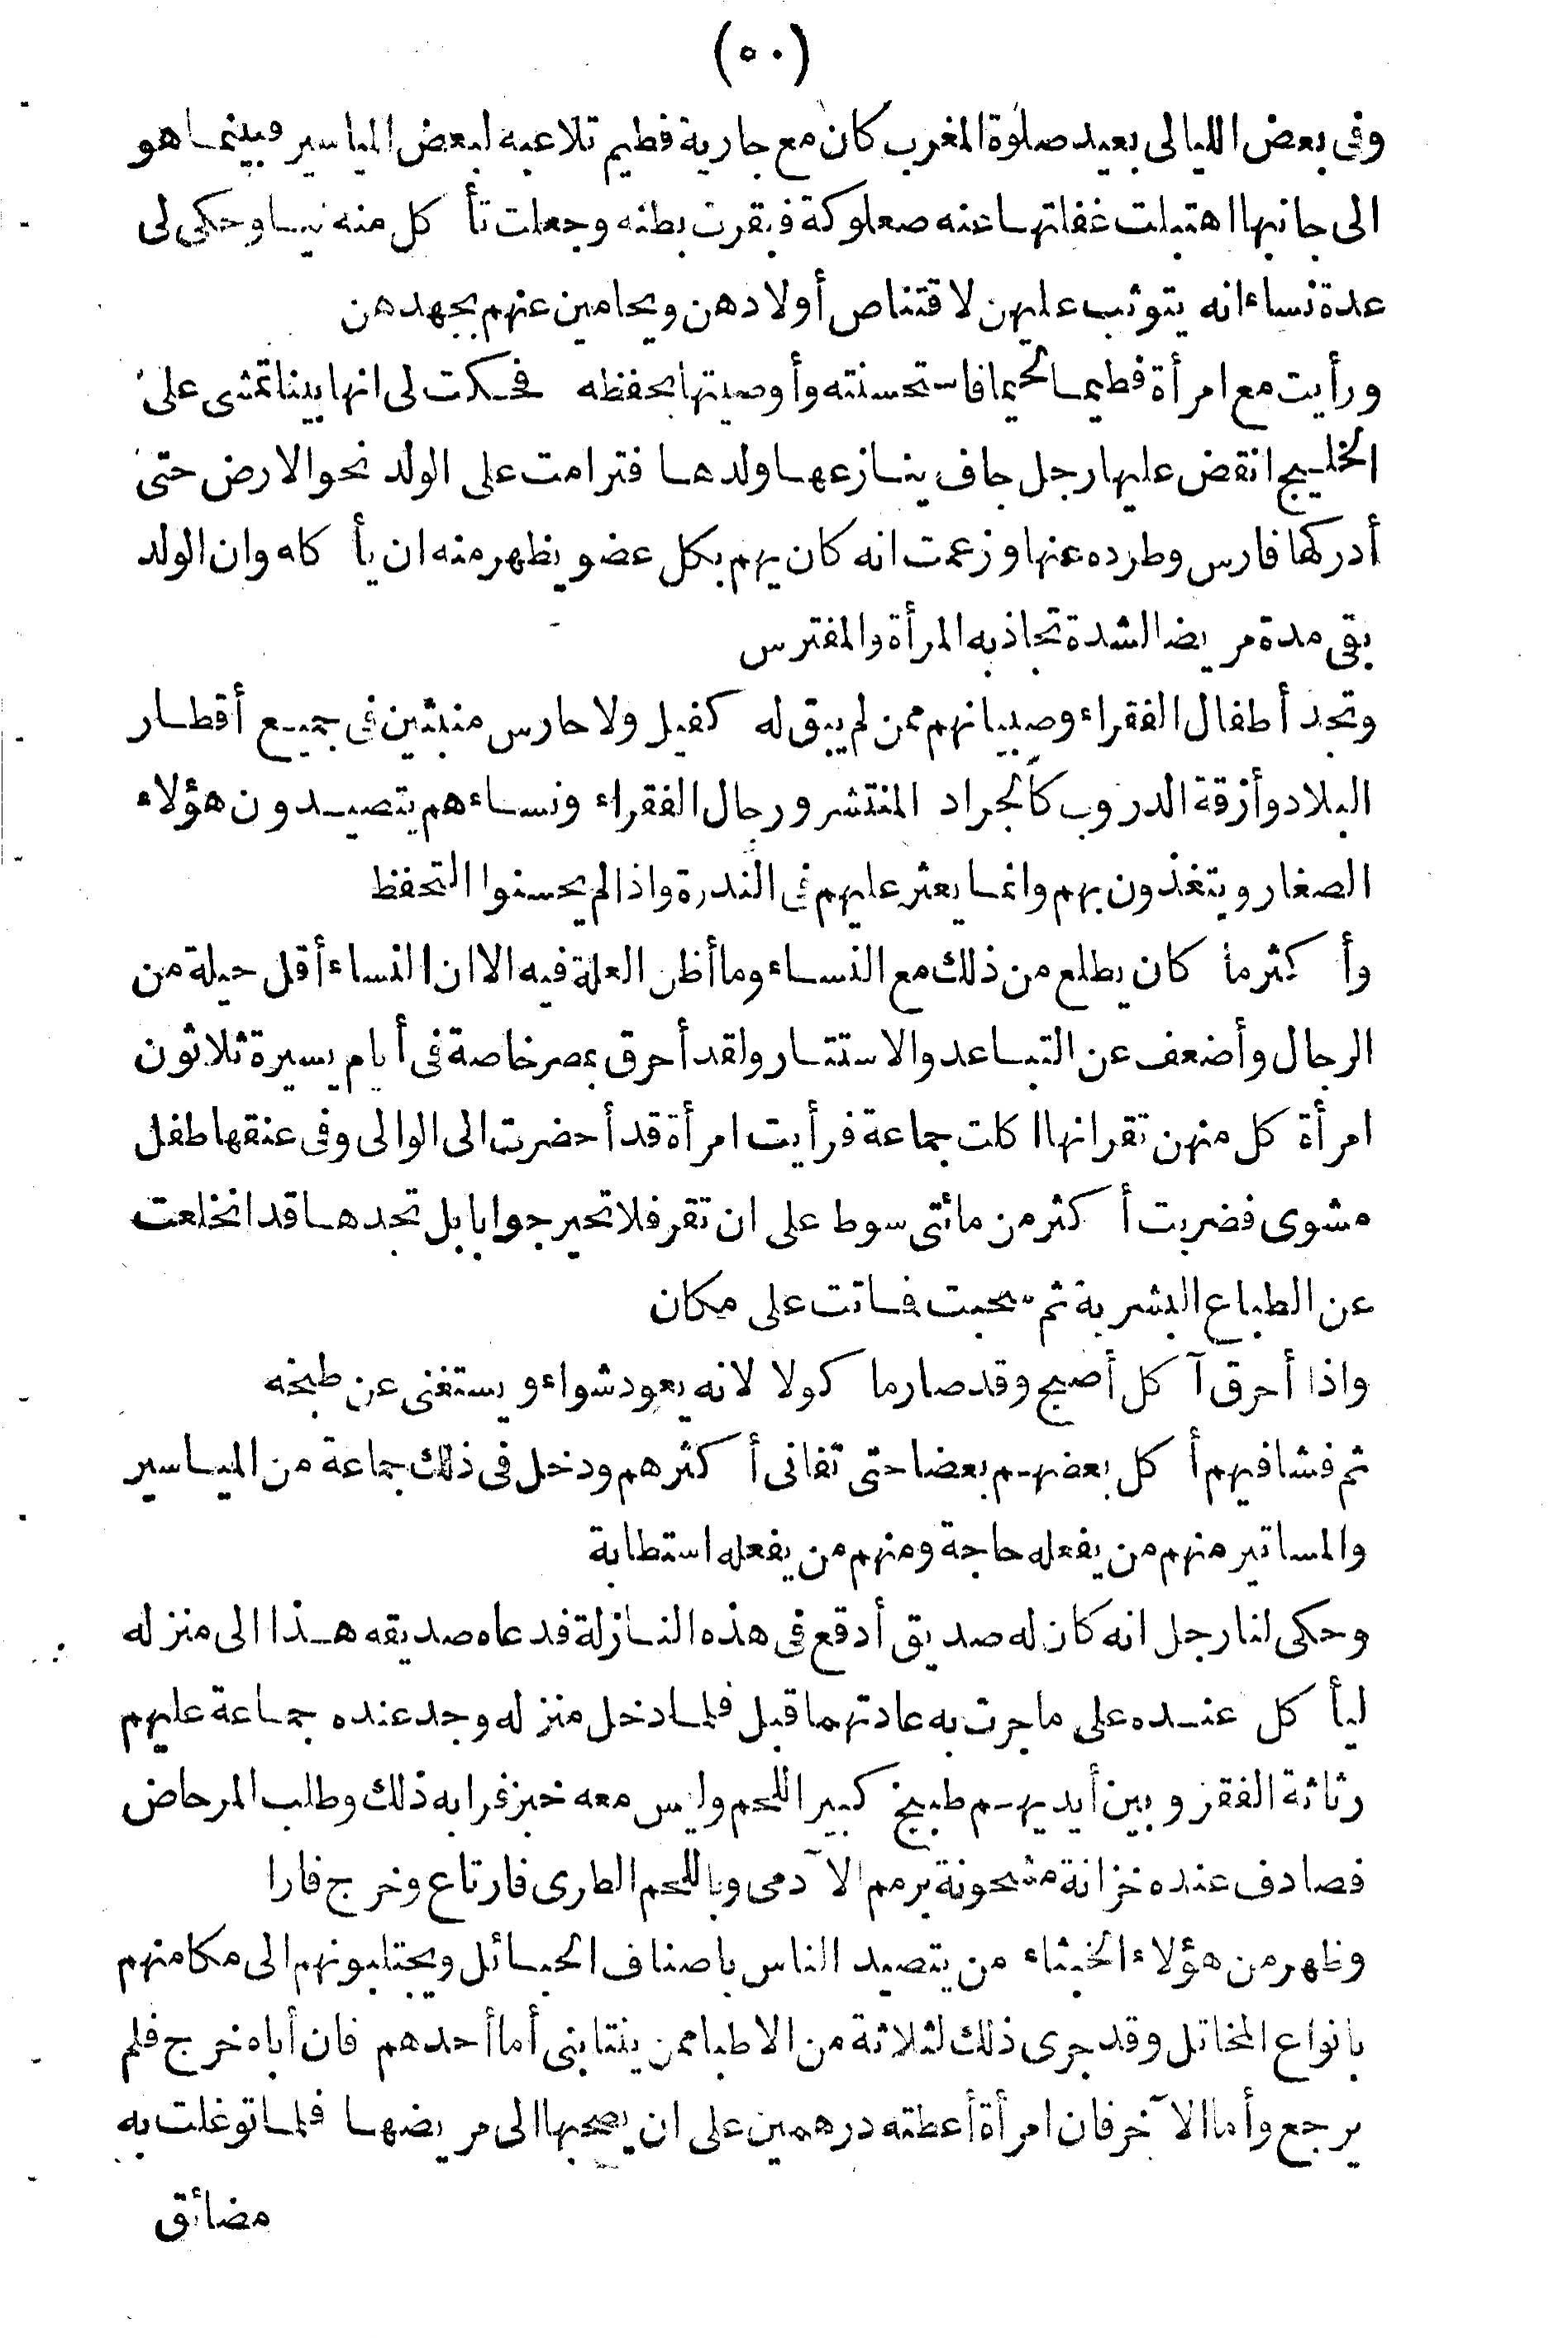 (٥٠)
وفى بعض الليالى بعيد صلوة المغرب كان مع جارية فطيم تلاعبه لبعض المياسير فبينما هو
الى جانبها اهتبلت غفلتها عنه صعلوكة فبقرت بطنه وجعلت تأكل منه نيا وحكى لى
عدة نساء انه يتوثب عليهن لاقتناص أولادهن ويحامين عنهم بجهدهن
ورأيت مع امرأة فطيما لحيما فاستحسنته وأوصيتها بحفظه فحكت لى انها بينا تمشى على
الخليج انقض عليها رجل جاف ينازعها ولدها فترامت على الولد نحو الارض حتى
أدركها فارس وطرده عنها وزعمت انه كان يهم بكل عضو يظهر منه ان يأكله وان الولد
بقى مدة مريضا لشدة تجاذبه المرأة والمفترس
وتجد أطفال الفقراء وصبيانهم ممن لم يبق له كفيل ولا حارس منبثين فى جميع أقطار
البلاد وأزقة الدروب كالجراد المنتشر ورجال الفقراء ونساءهم يتصيدون هؤلاء
الصغار ويتغذون بهم وانما يعثر عليهم فى الندرة واذا لم يحسنوا التحفظ
وأكثر ما كان يطلع من ذلك مع النساء وما أظن العلة فيه الا ان النساء أقل حيلة من
الرجال وأضعف عن التباعد والاستتار ولقد أحرق بمصر خاصة فى أيام يسيرة ثلاثون
امرأة كل منهن تقر انها اكلت جماعة فرأيت امرأة قد أحضرت الى الوالى وفى عنقها طفل
مشوى فضربت أكثر من مائتى سوط على ان تقر فلا تحير جوابا بل تجدها قد انخلعت
عن الطباع البشرية ثم سحبت فماتت على مكان
واذا أحرق آكل أصبح وقد صار مأكولا لانه يعود شواء ويستغنى عن طبخه
ثم فشا فيهم أكل بعضهم بعضا حتى تفانى أكثرهم ودخل فى ذلك جماعة من المياسير
والمساتير منهم من يفعله حاجة ومنهم من يفعله استطابة
وحكى لنا رجل انه كان له صديق أدقع فى هذه النازلة فدعاه صديقه هذا الى منزله
ليأكل عنده على ما جرت به عادتهما قبل فلما دخل منزله وجد عنده جماعة عليهم
رثاثة الفقر وبين أيديهم طبيخ كبير اللحم وليس معه خبز فرابه ذلك وطلب المرحاض
فصادف عنده خزانة مشحونة برمم الآدمى وباللحم الطرى فارتاع وخرج فارا
وظهر من هؤلاء الخبثاء من يتصيد الناس باصناف الحبائل ويجتلبونهم الى مكامنهم
بانواع المخاتل وقد جرى ذلك لثلاثة من الاطبا ممن ينتابنى أما أحدهم فان أباه خرج فلم
يرجع وأما الآخر فان امرأة أعطته درهمين على ان يصحبها الى مريضها فلما توغلت به
مضائق